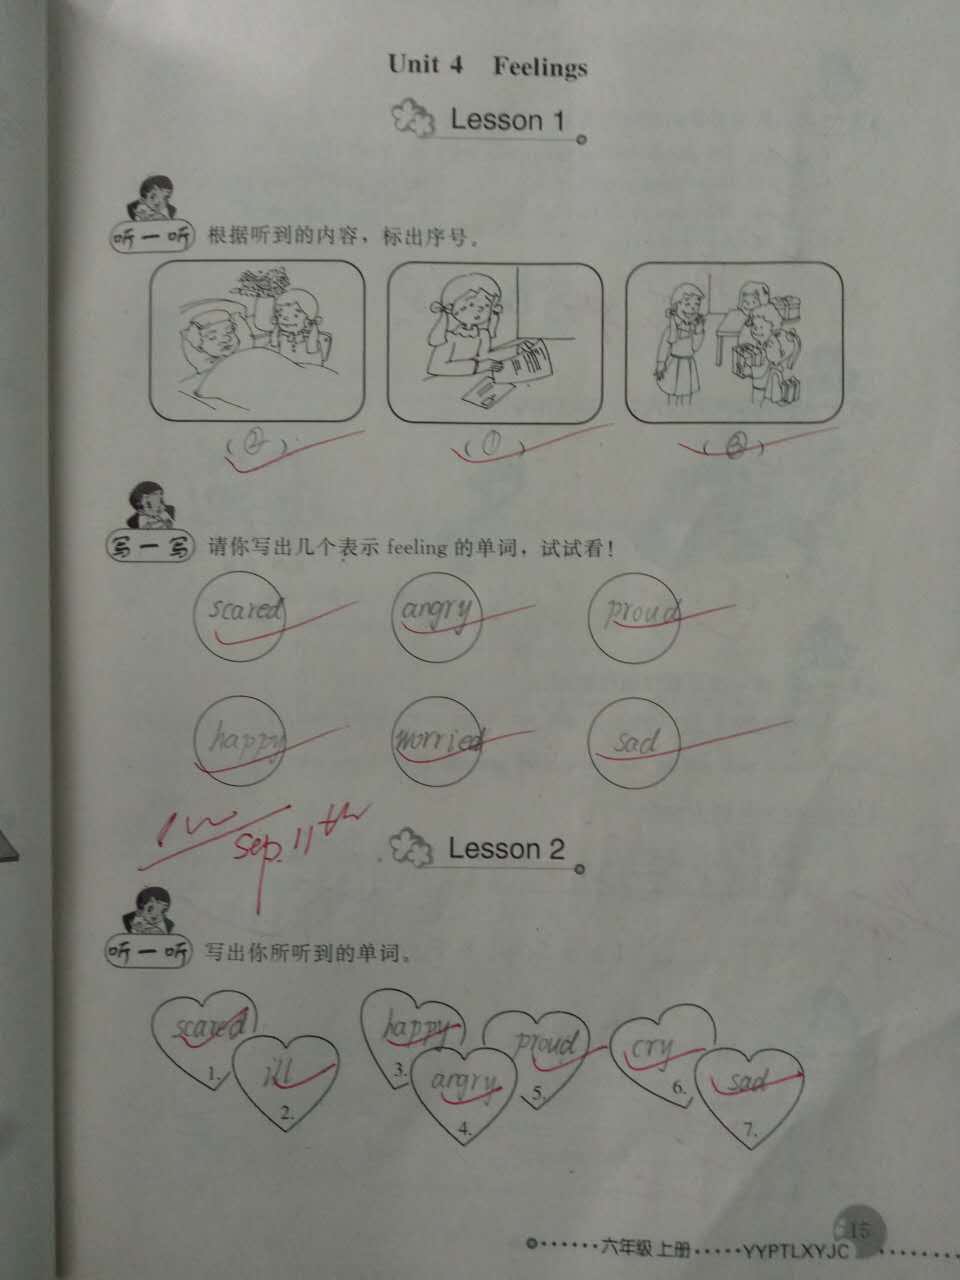 Unit 4 Feelings
Lesson 1
听一听 根据听到的内容，标出序号。
(②) (①) (③)
写一写 请你写出几个表示 feeling 的单词，试试看！
scared angry proud
happy worried sad
Sep. 11th
Lesson 2
听一听 写出你所听到的单词。
scared 1.
ill 2.
happy 3.
angry 4.
proud 5.
cry 6.
sad 7.
15
六年级上册 YYPTLXYJC